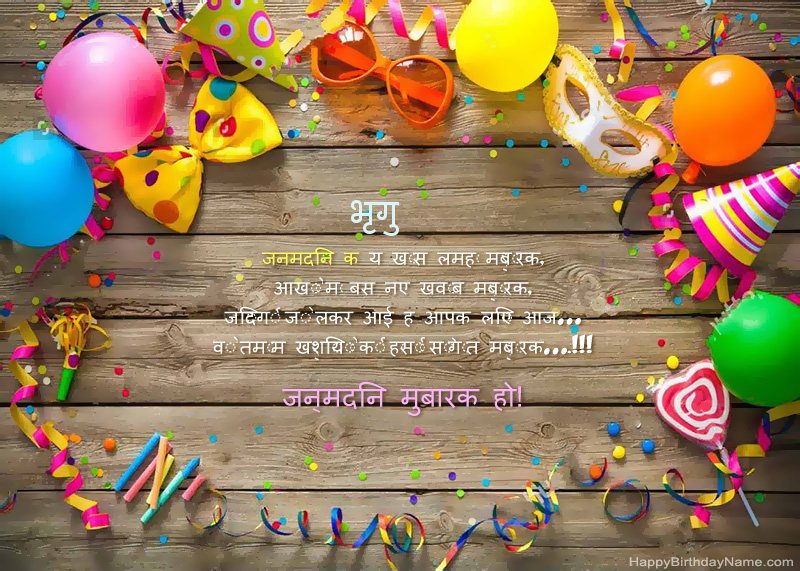 भृगु
जनमदनि क य खास लमह मबारक,
आखो म बस नए खवाब मबारक,
जदिगी जो लेकर आई ह आपक लएि आज...
वो तमाम खशयिो की हसी सौगात मबारक...!!!
जन्मदनि मुबारक हो!
HappyBirthdayName.com